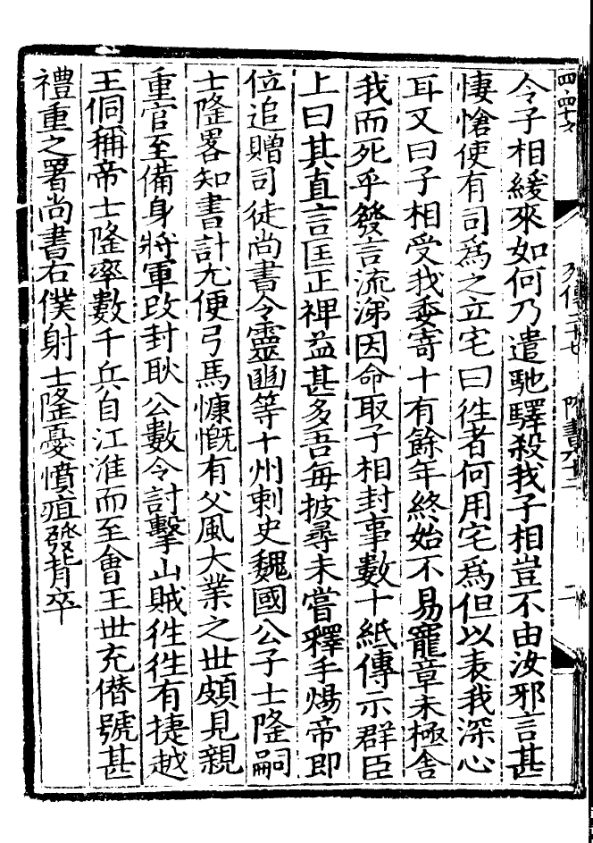 列傳二十七 隋書六十二
令子相緩來如何乃遣馳驛殺我子相豈不由汝邪言甚
悽愴使有司爲之立宅曰徃者何用宅爲但以表我深心
耳又曰子相受我委寄十有餘年終始不易寵章未極舍
我而死乎發言流涕因命取子相封事數十紙傳示群臣
上曰其直言匡正裨益甚多吾每披尋未嘗釋手煬帝即
位追贈司徒尚書令靈豳等十州刺史魏國公子士隆嗣
士隆畧知書計尤便弓馬慷慨有父風大業之丗頗見親
重官至備身將軍改封耿公數令討擊山賊徃徃有捷越
王侗稱帝士隆率數千兵自江淮而至會王丗充僭號甚
禮重之署尚書右僕射士隆憂憤疽發背卒